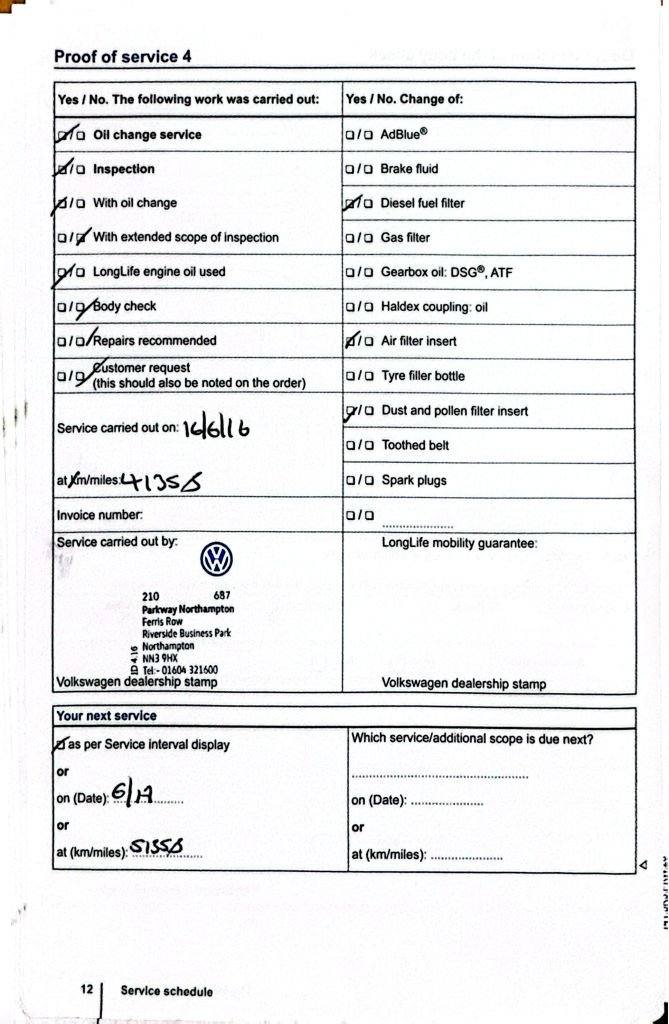 Proof of service 4
Yes / No. The following work was carried out:
☑/☐ Oil change service
☑/☐ Inspection
☑/☐ With oil change
☐/☑ With extended scope of inspection
☑/☐ LongLife engine oil used
☐/☑ Body check
☐/☑ Repairs recommended
☐/☑ Customer request
(this should also be noted on the order)
Service carried out on: 16/6/16
at km/miles:
Invoice number:
Service carried out by:
210 687
Parkway Northampton
Ferris Row
Riverside Business Park
Northampton
NN3 9HX
Tel:- 01604 321600
ID 4.16
Volkswagen dealership stamp
Yes / No. Change of:
☐/☐ AdBlue®
☐/☐ Brake fluid
☑/☐ Diesel fuel filter
☐/☐ Gas filter
☐/☐ Gearbox oil: DSG®, ATF
☐/☐ Haldex coupling: oil
☑/☐ Air filter insert
☐/☐ Tyre filler bottle
☑/☐ Dust and pollen filter insert
☐/☐ Toothed belt
☐/☐ Spark plugs
☐/☐ ....................
LongLife mobility guarantee:
Volkswagen dealership stamp
Your next service
☑ as per Service interval display
or
on (Date): 6/17
or
at (km/miles):
Which service/additional scope is due next?
on (Date): ....................
or
at (km/miles): ....................
12 Service schedule